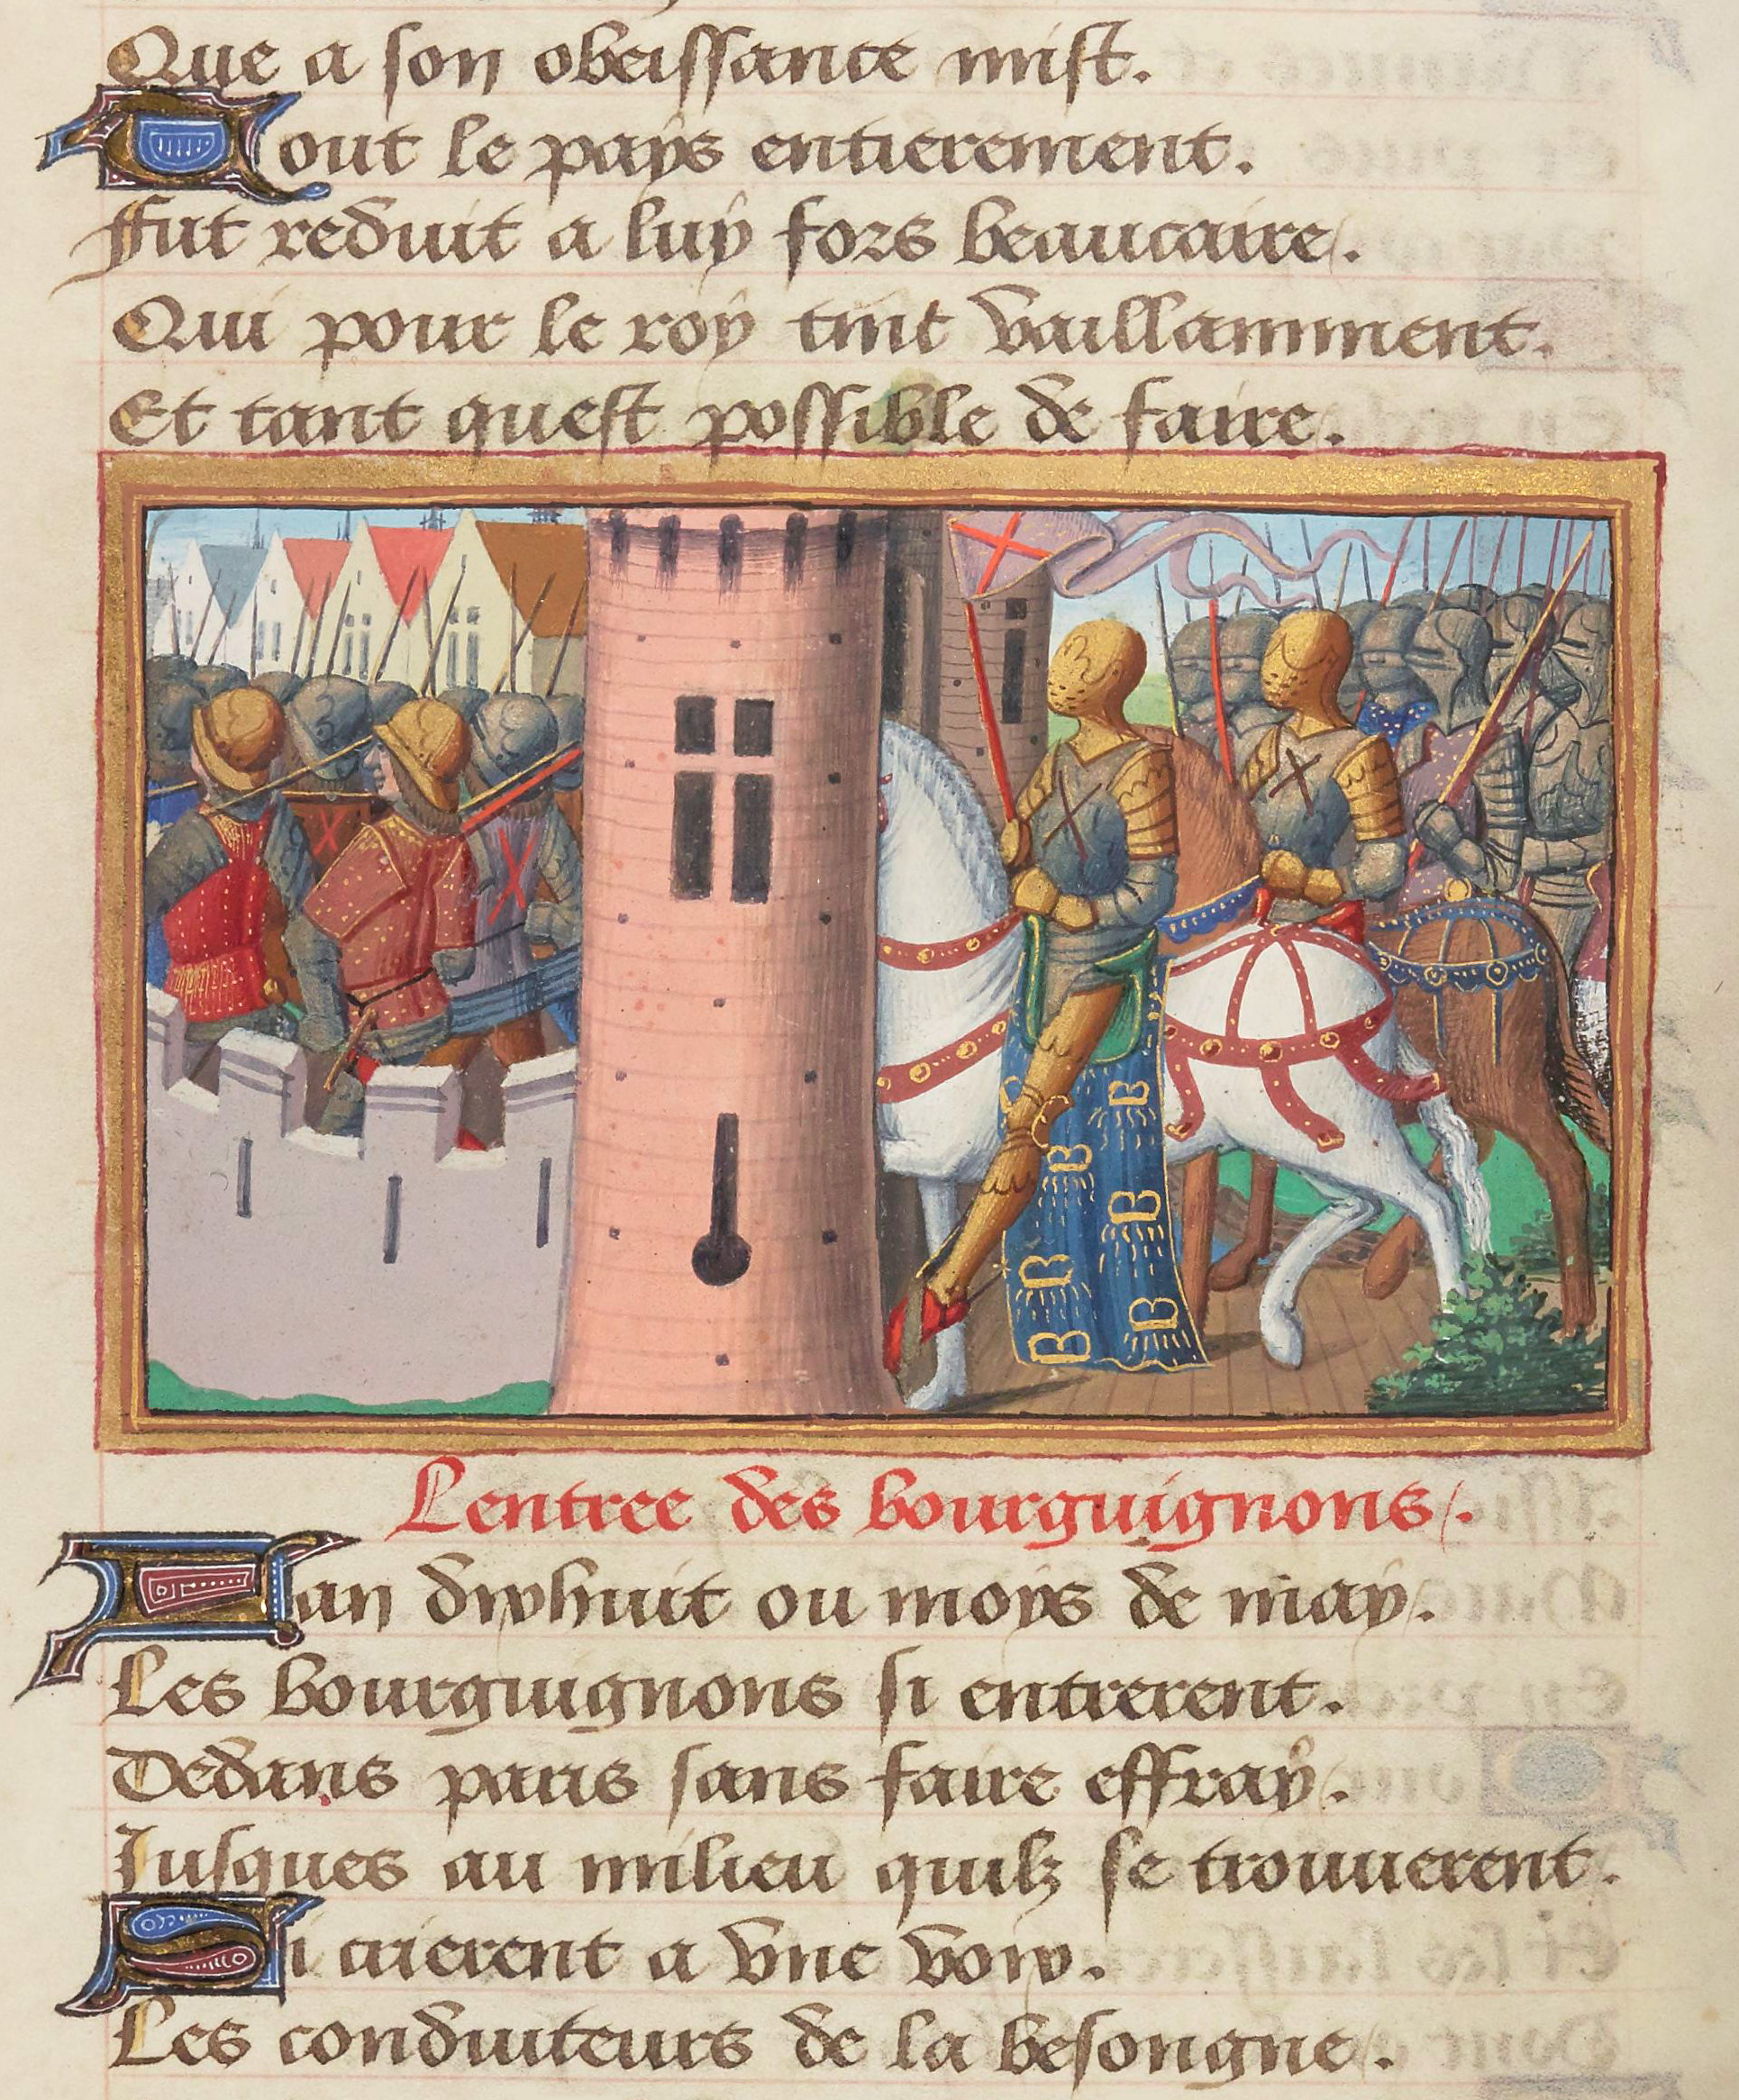 Que a son obeissance mist.
Tout le pays entierement.
Fut reduit a luy fors beaucaire.
Qui pour le roy tint vaillamment.
Et tant quest possible de faire.
B B B B B B
Lentree des bourguignons.
Lan dixhuit ou moys de may.
Les bourguignons si entrerent.
Dedans paris sans faire effray.
Iusques au milieu quilz se trouuerent.
Si crierent a vne voix.
Les conduiteurs de la besongne.